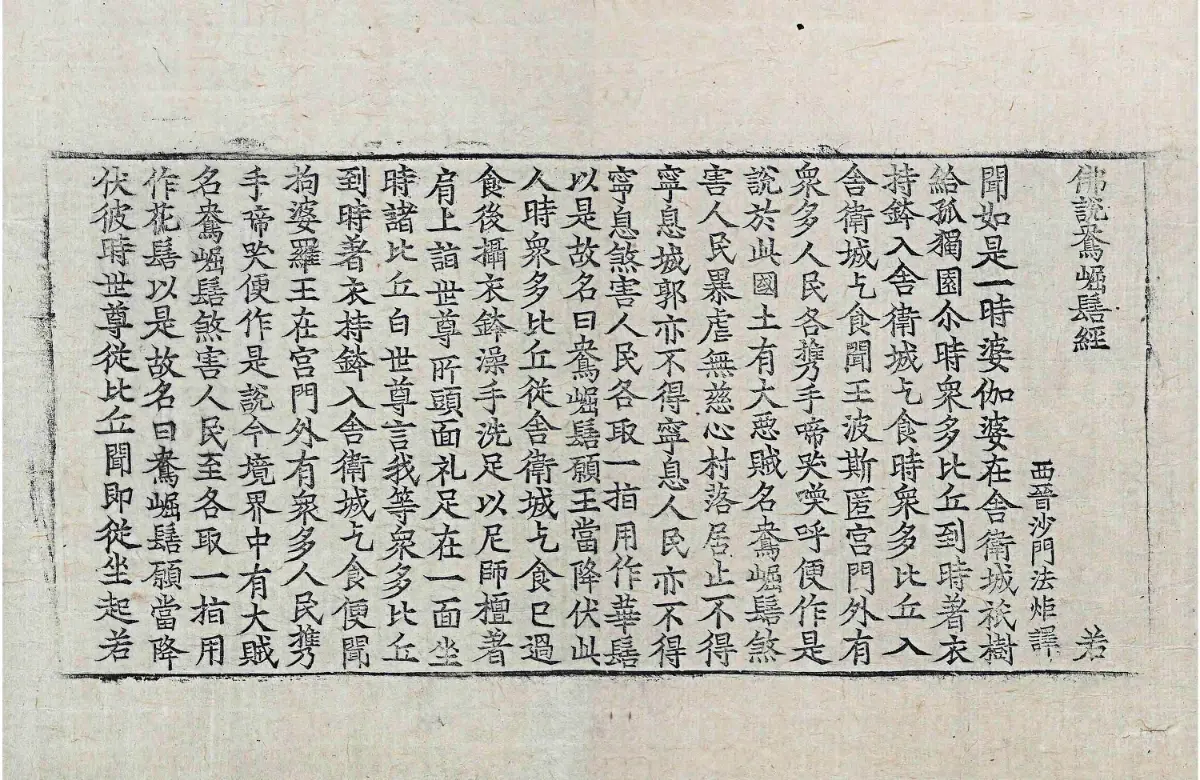 佛說鴦崛髻經 若
西晉沙門法炬譯
聞如是一時婆伽婆在舍衛城祇樹
給孤獨園尒時衆多比丘到時著衣
持鉢入舍衛城乞食時衆多比丘入
舍衛城乞食聞王波斯匿宮門外有
衆多人民各携手啼哭喚呼便作是
說於此國土有大惡賊名鴦崛髻煞
害人民暴虐無慈心村落居止不得
寧息城郭亦不得寧息人民亦不得
寧息煞害人民各取一指用作華髻
以是故名曰鴦崛髻願王當降伏此
人時衆多比丘從舍衛城乞食已過
食後攝衣鉢澡手洗足以尼師檀著
肩上詣世尊所頭面礼足在一面坐
時諸比丘白世尊言我等衆多比丘
到時著衣持鉢入舍衛城乞食便聞
拘婆羅王在宮門外有衆多人民携
手啼哭便作是說今境界中有大賊
名鴦崛髻煞害人民至各取一指用
作花髻以是故名曰鴦崛髻願當降
伏彼時世尊從比丘聞即從坐起若